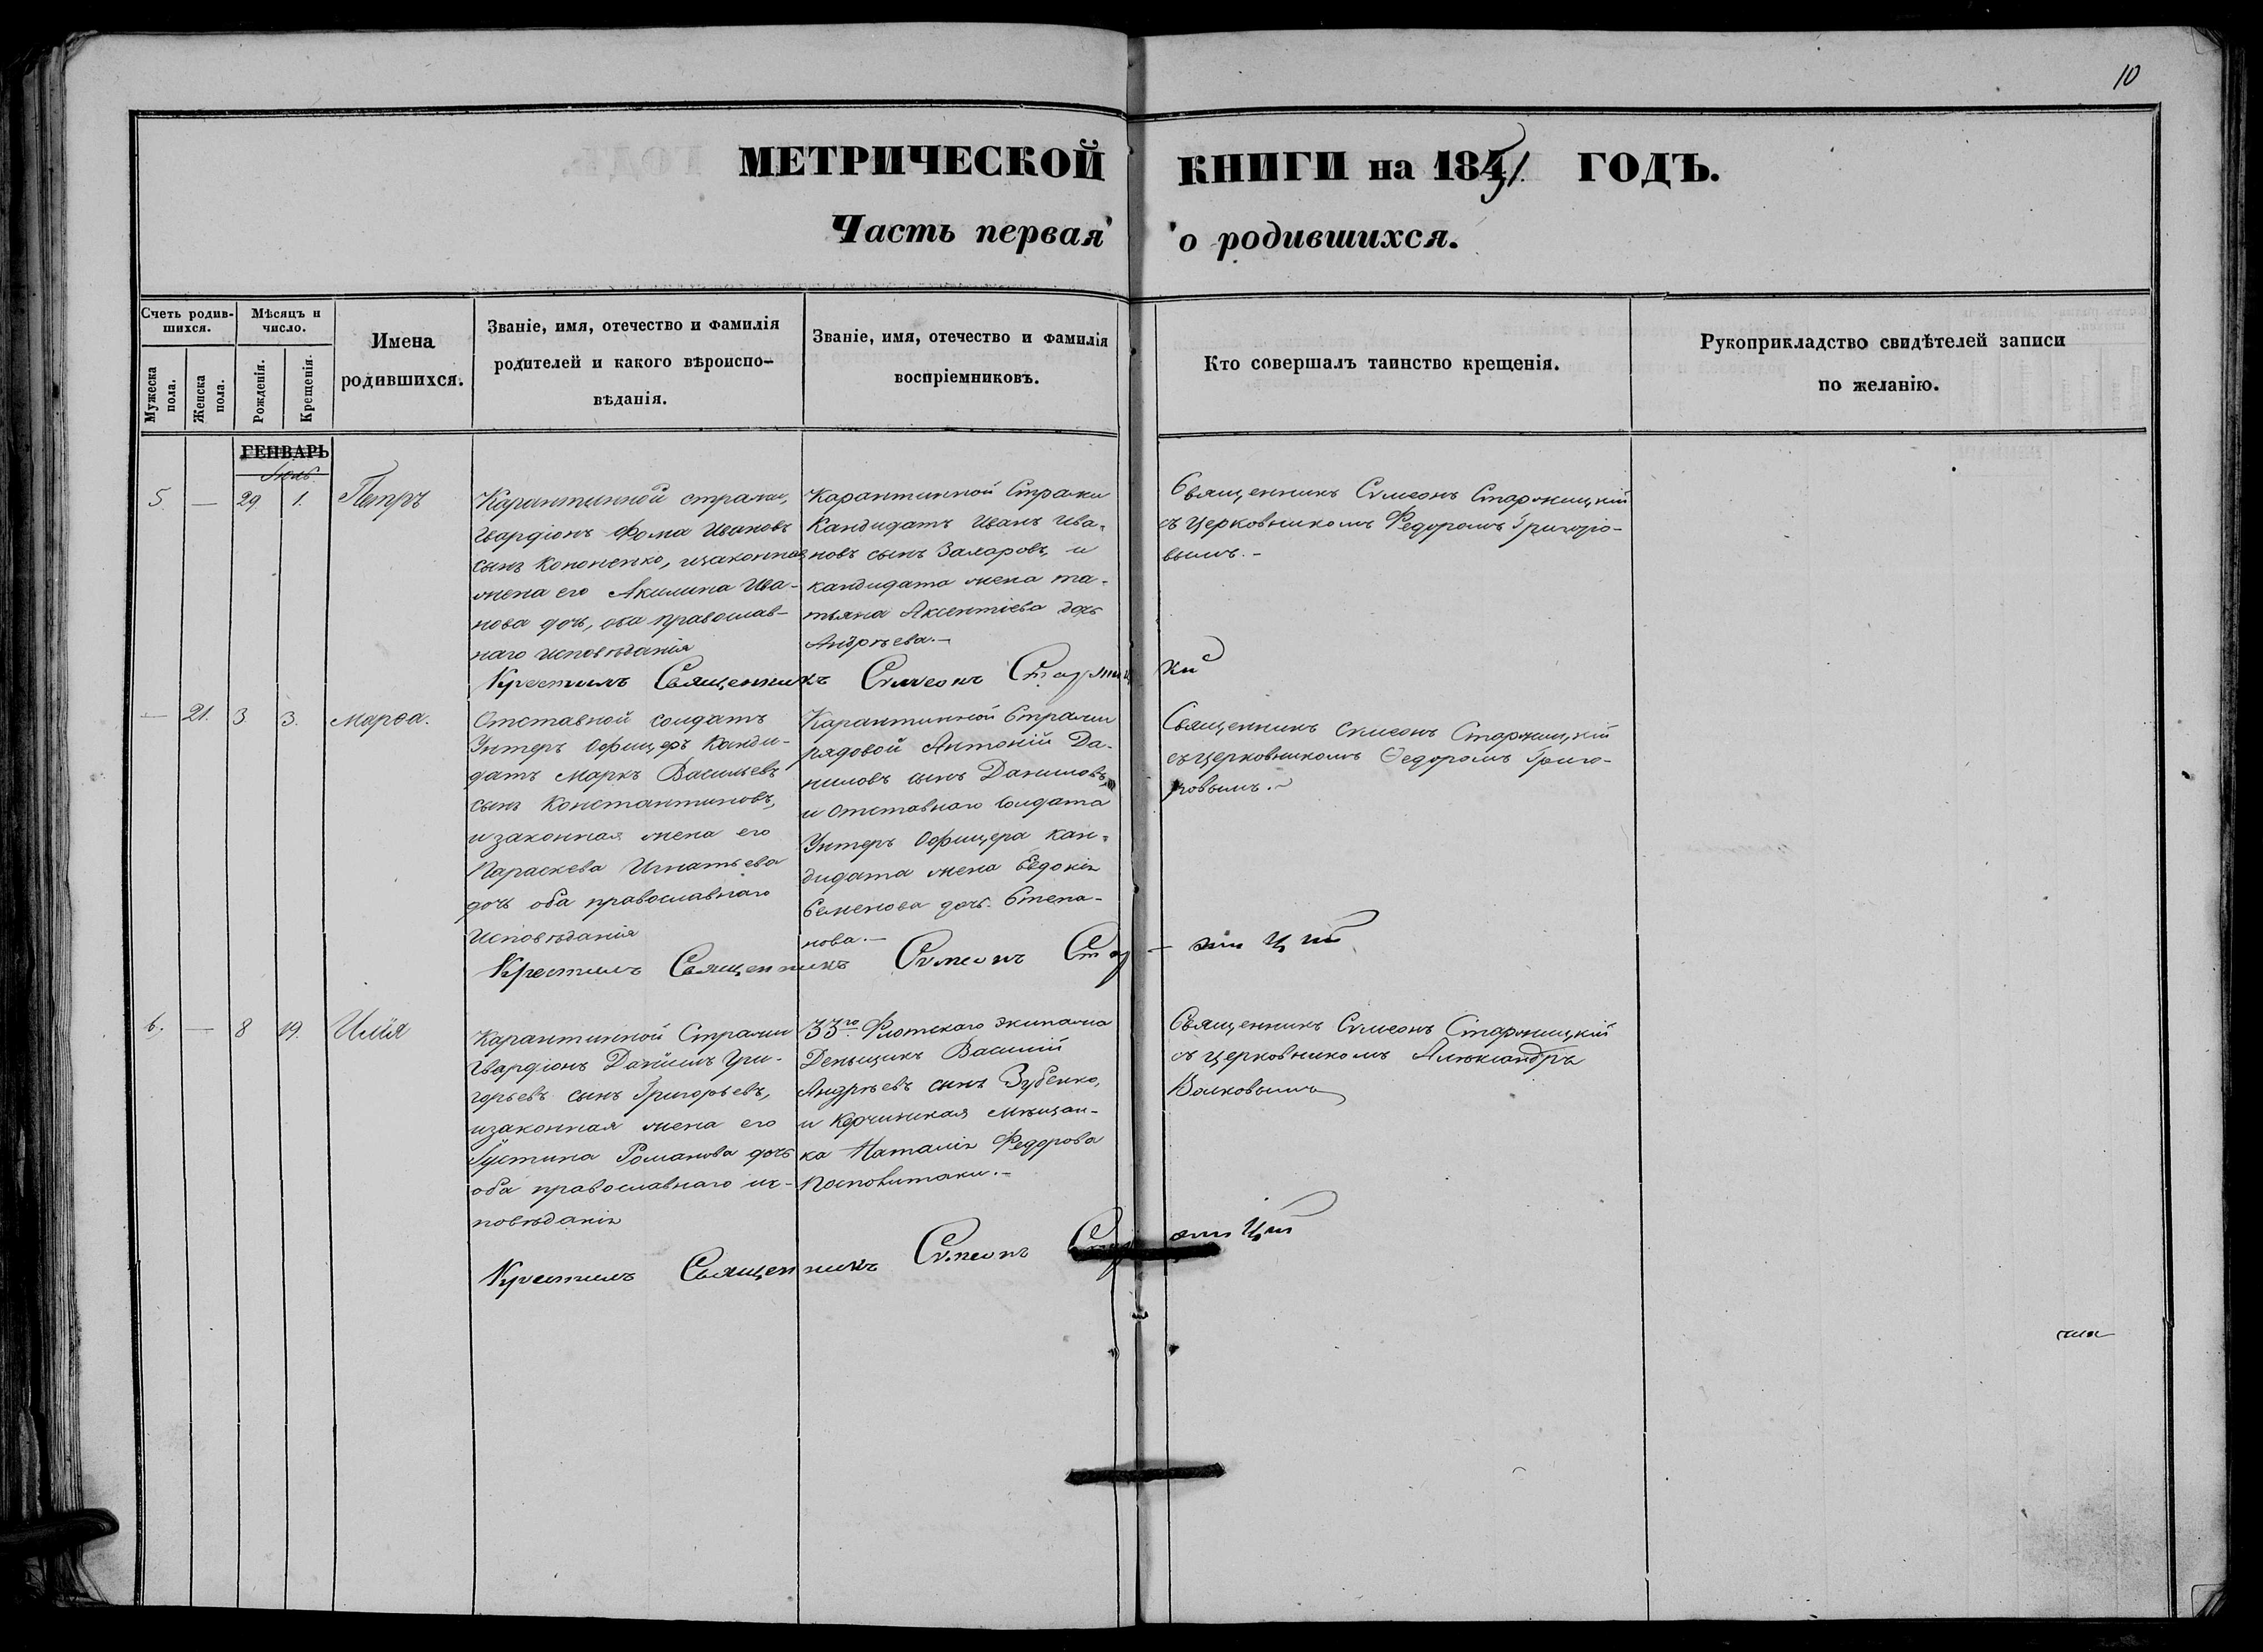 10
МЕТРИЧЕСКОЙ КНИГИ на 1851 ГОДЪ.
Часть первая о родившихся.
Счетъ родив-
шихся.
Мужеска
пола.
Женска
пола.
Мѣсяцъ и
число.
Рожденія.
Крещенія.
Имена
родившихся.
Званіе, имя, отечество и фамилія
родителей и какого вѣроиспо-
вѣданія.
Званіе, имя, отечество и фамилія
воспріемниковъ.
Кто совершалъ таинство крещенія.
Рукоприкладство свидѣтелей записи
по желанію.
ГЕНВАРЬ
Іюль
5. — 29. 1. Петръ
Карантинной стражи,
Гвардіонъ Фома Ивановъ
сынъ Кононенко, изаконная
жена его Акилина Ива-
нова дочь, оба православ-
наго исповѣданія
Карантинной Стражи
Кандидатъ Иванъ Ива-
новъ сынъ Захаровъ, и
кандидата жена та-
тьяна Аксентіева дочь
Андрѣева.—
Священникъ Сѵмеонъ Старжицкій
съ церковникомъ Федоромъ Григорі-
вымъ.—
Крестилъ Священникъ Сѵмеонъ Старжицкій
— 21. 3 3. Марѳа.
Отставной солдатъ
Унтеръ Офицеръ Канди-
датъ Маркъ Васильевъ
сынъ Константиновъ,
изаконная жена его
Параскева Игнатьева
дочь оба православнаго
исповѣданія
Карантинной Стражи
рядовой Антоній Да-
ниловъ сынъ Даниловъ,
и Отставнаго Солдата
Унтеръ Офицера Кан-
дидата жена Евдокія
Семенова дочь Степа-
нова.—
Священникъ Сѵмеонъ Старжицкій
съ церковникомъ Ѳедоромъ Григо-
ровымъ.—
Крестилъ Священникъ Сѵмеонъ Старжицкій
6. — 8 19. Илія
Карантинной Стражи
Гвардіонъ Даніилъ Гри-
горьевъ сынъ Григорьевъ,
изаконная жена его
Іустина Романова дочь
оба православнаго ис-
повѣданія
33го Флотскаго экипажа
Деньщикъ Василій
Андрѣевъ сынъ Зубенко,
и Керчинская мѣщан-
ка Наталія Федорова
Священникъ Сѵмеонъ Старжицкій
съ церковникомъ Александръ
Волковымъ
Крестилъ Священникъ Сѵмеонъ Старжицкій